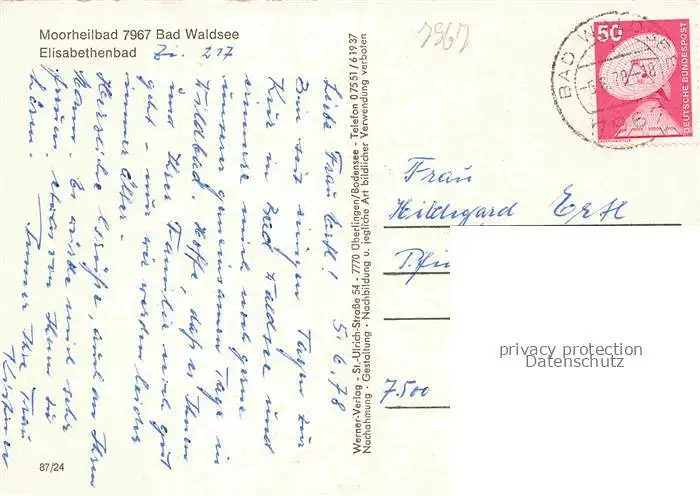 Moorheilbad 7967 Bad Waldsee
Elisabethenbad Zi. 217
7967
5.6.78
Liebe Frau Ertl!
Bin seit einigen Tagen zur
Kur in Bad Waldsee und
erinnere mich noch gerne
unserer gemeinsamen Tage in
Wildbad. Hoffe, daß es Ihnen
und Ihrer Familie recht gut
geht – nur wir werden leider
immer älter.
Herzliche Grüße, auch an Ihren
Mann. Es würde mich sehr
freuen, etwas von Ihnen zu
hören.
Immer Ihre Frau
Kirchner
87/24
Werner-Verlag - St.-Ulrich-Straße 54 - 7770 Überlingen/Bodensee - Telefon 07551/61937
Nachahmung · Gestaltung · Nachbildung u. jegliche Art bildlicher Verwendung verboten
BAD WALDSEE
7967
50
DEUTSCHE BUNDESPOST
Frau
Hildegard Ertl
7500
privacy protection
Datenschutz